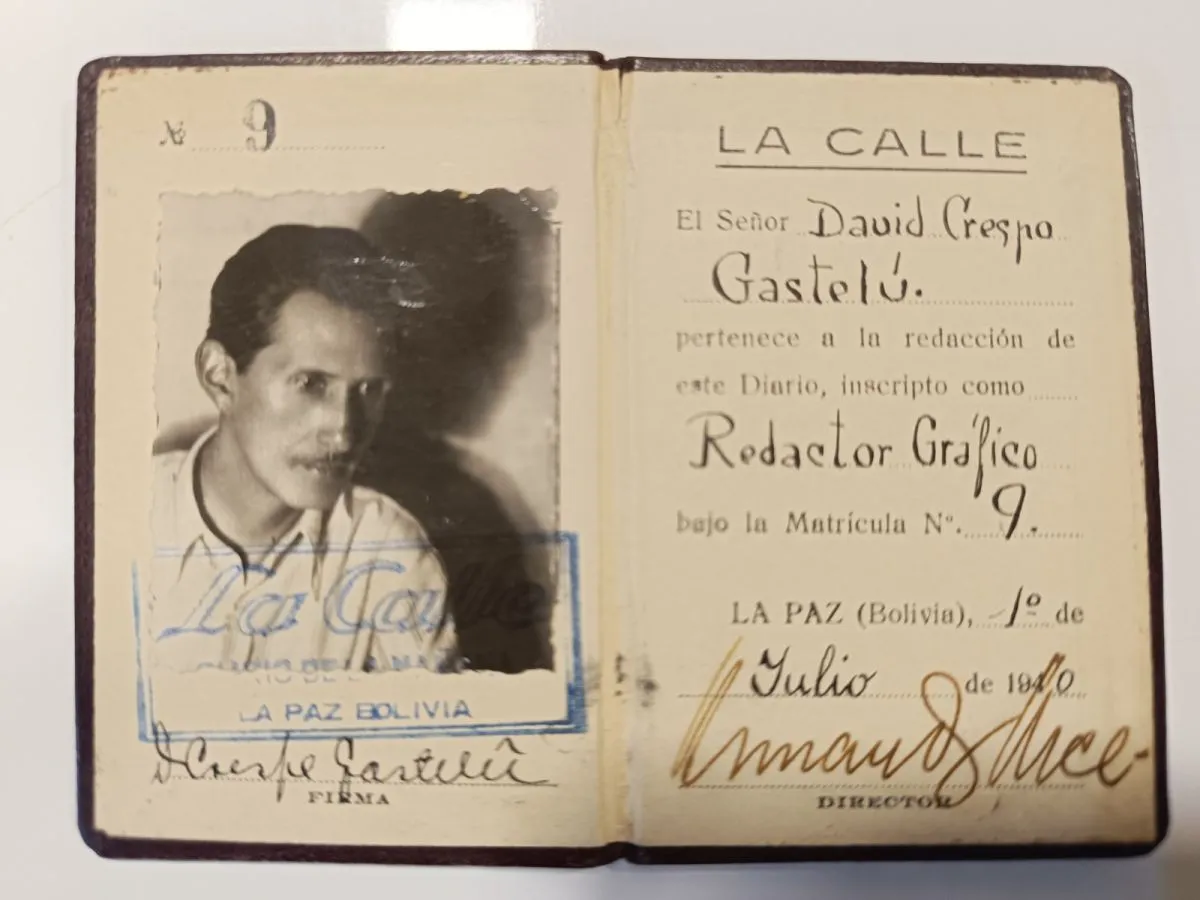 № 9
La Calle
LA PAZ BOLIVIA
D Crespo Gastelú
FIRMA
LA CALLE
El Señor David Crespo
Gastelú.
pertenece a la redacción de
este Diario, inscripto como
Redactor Gráfico
bajo la Matrícula Nº. 9.
LA PAZ (Bolivia), 1º de
Julio de 1940
DIRECTOR